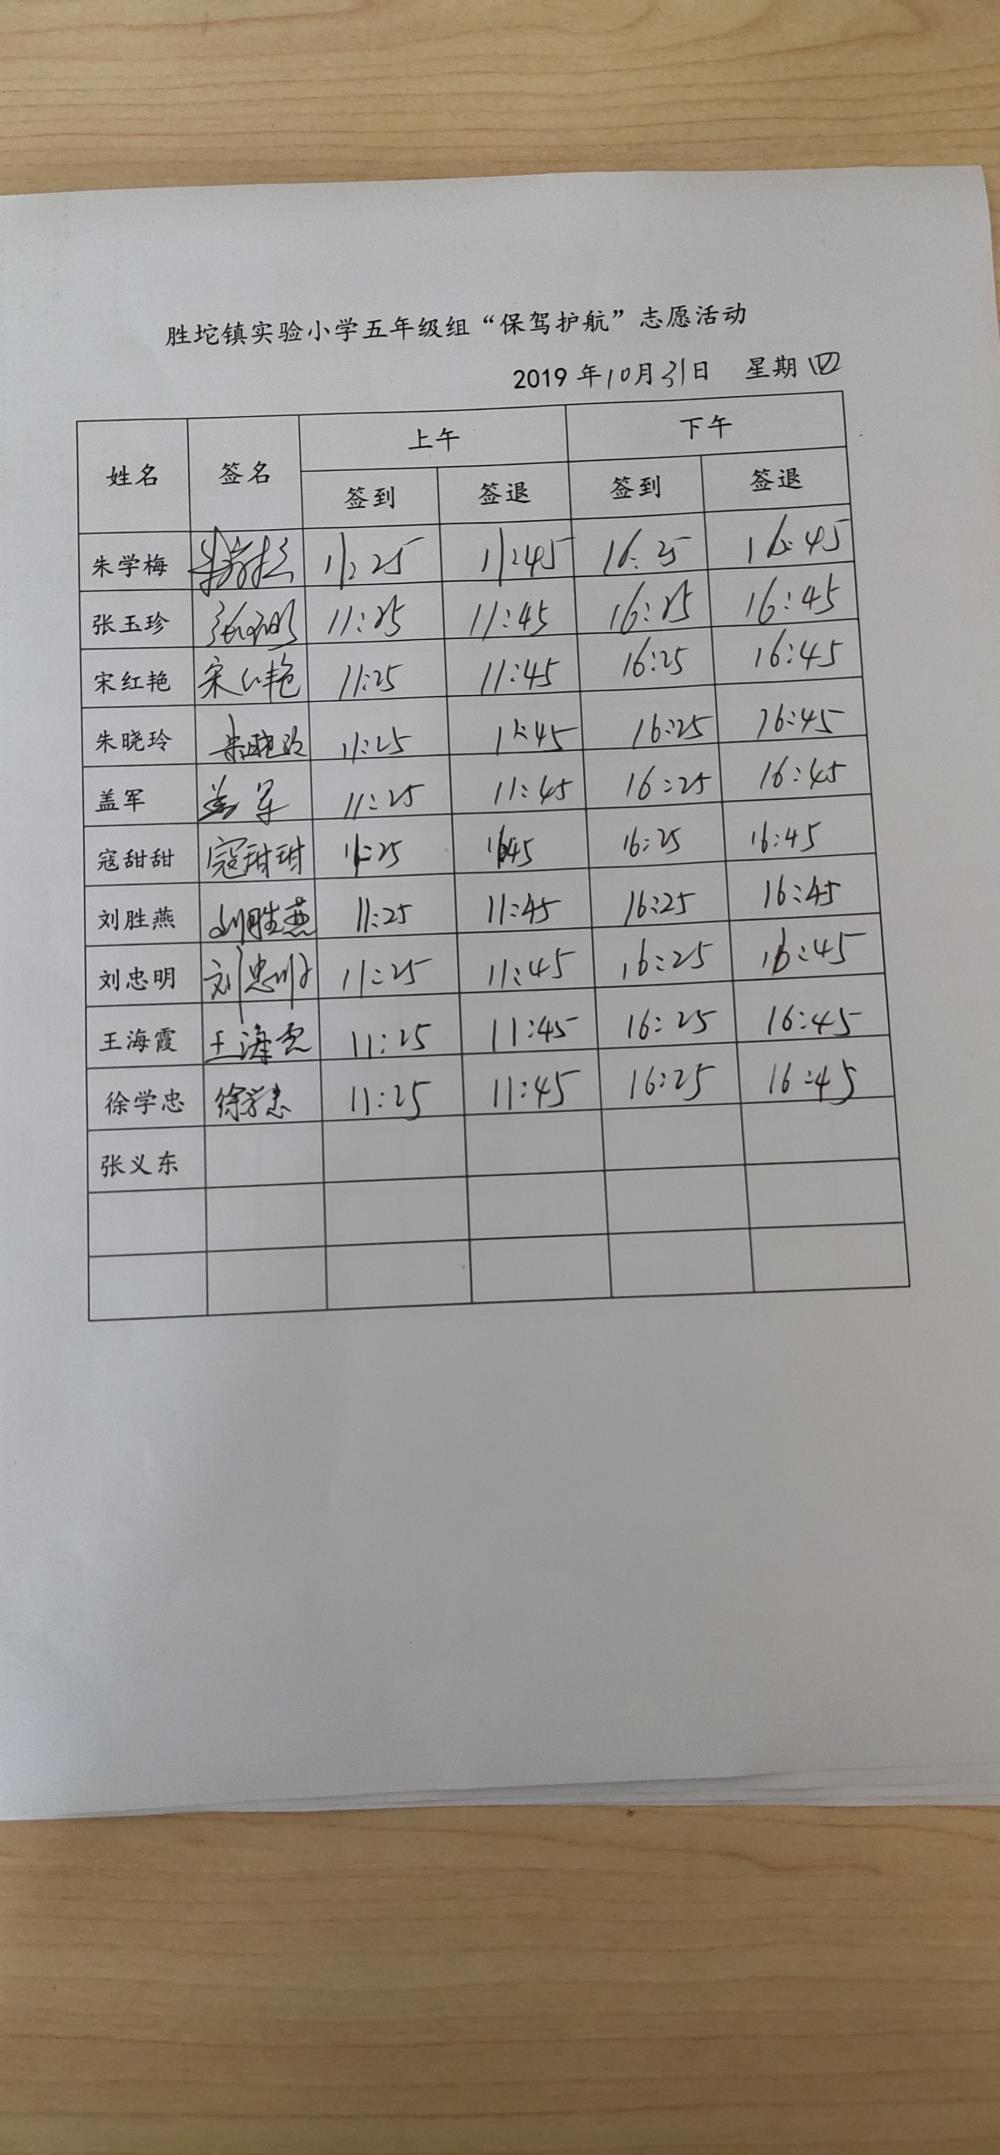 胜坨镇实验小学五年级组“保驾护航”志愿活动
2019年10月31日 星期四
姓名 签名 上午 下午
签到 签退 签到 签退
朱学梅 朱学梅 11:25 11:45 16:25 16:45
张玉珍 11:25 11:45 16:25 16:45
宋红艳 宋红艳 11:25 11:45 16:25 16:45
朱晓玲 朱晓玲 11:25 11:45 16:25 16:45
盖军 盖军 11:25 11:45 16:25 16:45
寇甜甜 寇甜甜 11:25 1645 16:25 16:45
刘胜燕 刘胜燕 11:25 11:45 16:25 16:45
刘忠明 刘忠明 11:25 11:45 16:25 16:45
王海霞 王海霞 11:25 11:45 16:25 16:45
徐学忠 徐学忠 11:25 11:45 16:25 16:45
张义东